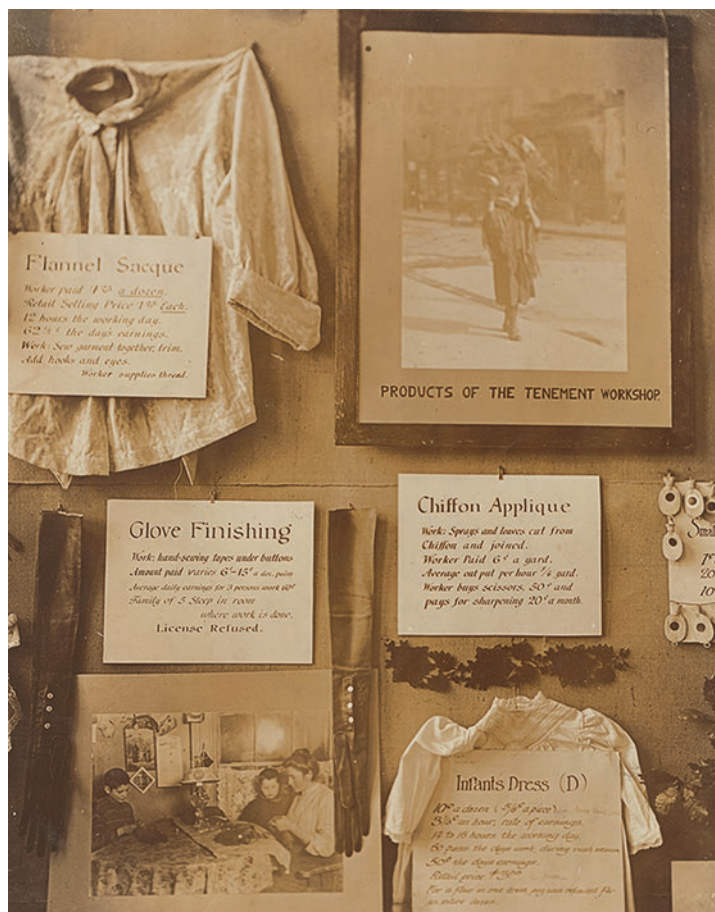 Flannel Sacque
Worker paid a dozen.
Retail Selling Price Each.
12 hours the working day.
62 ½ ¢ the day's earnings.
Work: Sew garment together, trim.
Add hooks and eyes.
Worker supplies thread.
PRODUCTS OF THE TENEMENT WORKSHOP.
Glove Finishing
Work: hand-sewing tapes under buttons
Amount paid varies 6¢-15¢ a doz. pairs
Average daily earnings for 3 persons work 60¢
Family of 5 Sleep in room
where work is done.
License Refused.
Chiffon Applique
Work: Sprays and leaves cut from
Chiffon and joined.
Worker Paid 6¢ a yard.
Average out put per hour yard.
Worker buys scissors, 50¢ and
pays for sharpening 20¢ a month.
Infants Dress (D)
10¢ a dozen (5/6¢ a piece)
an hour, rate of earnings.
to 16 hours the working day.
60 pieces the days work, during rush season
50¢ the days earnings.
Retail price
For a flaw in one dress, pay was refused for
an entire dozen.